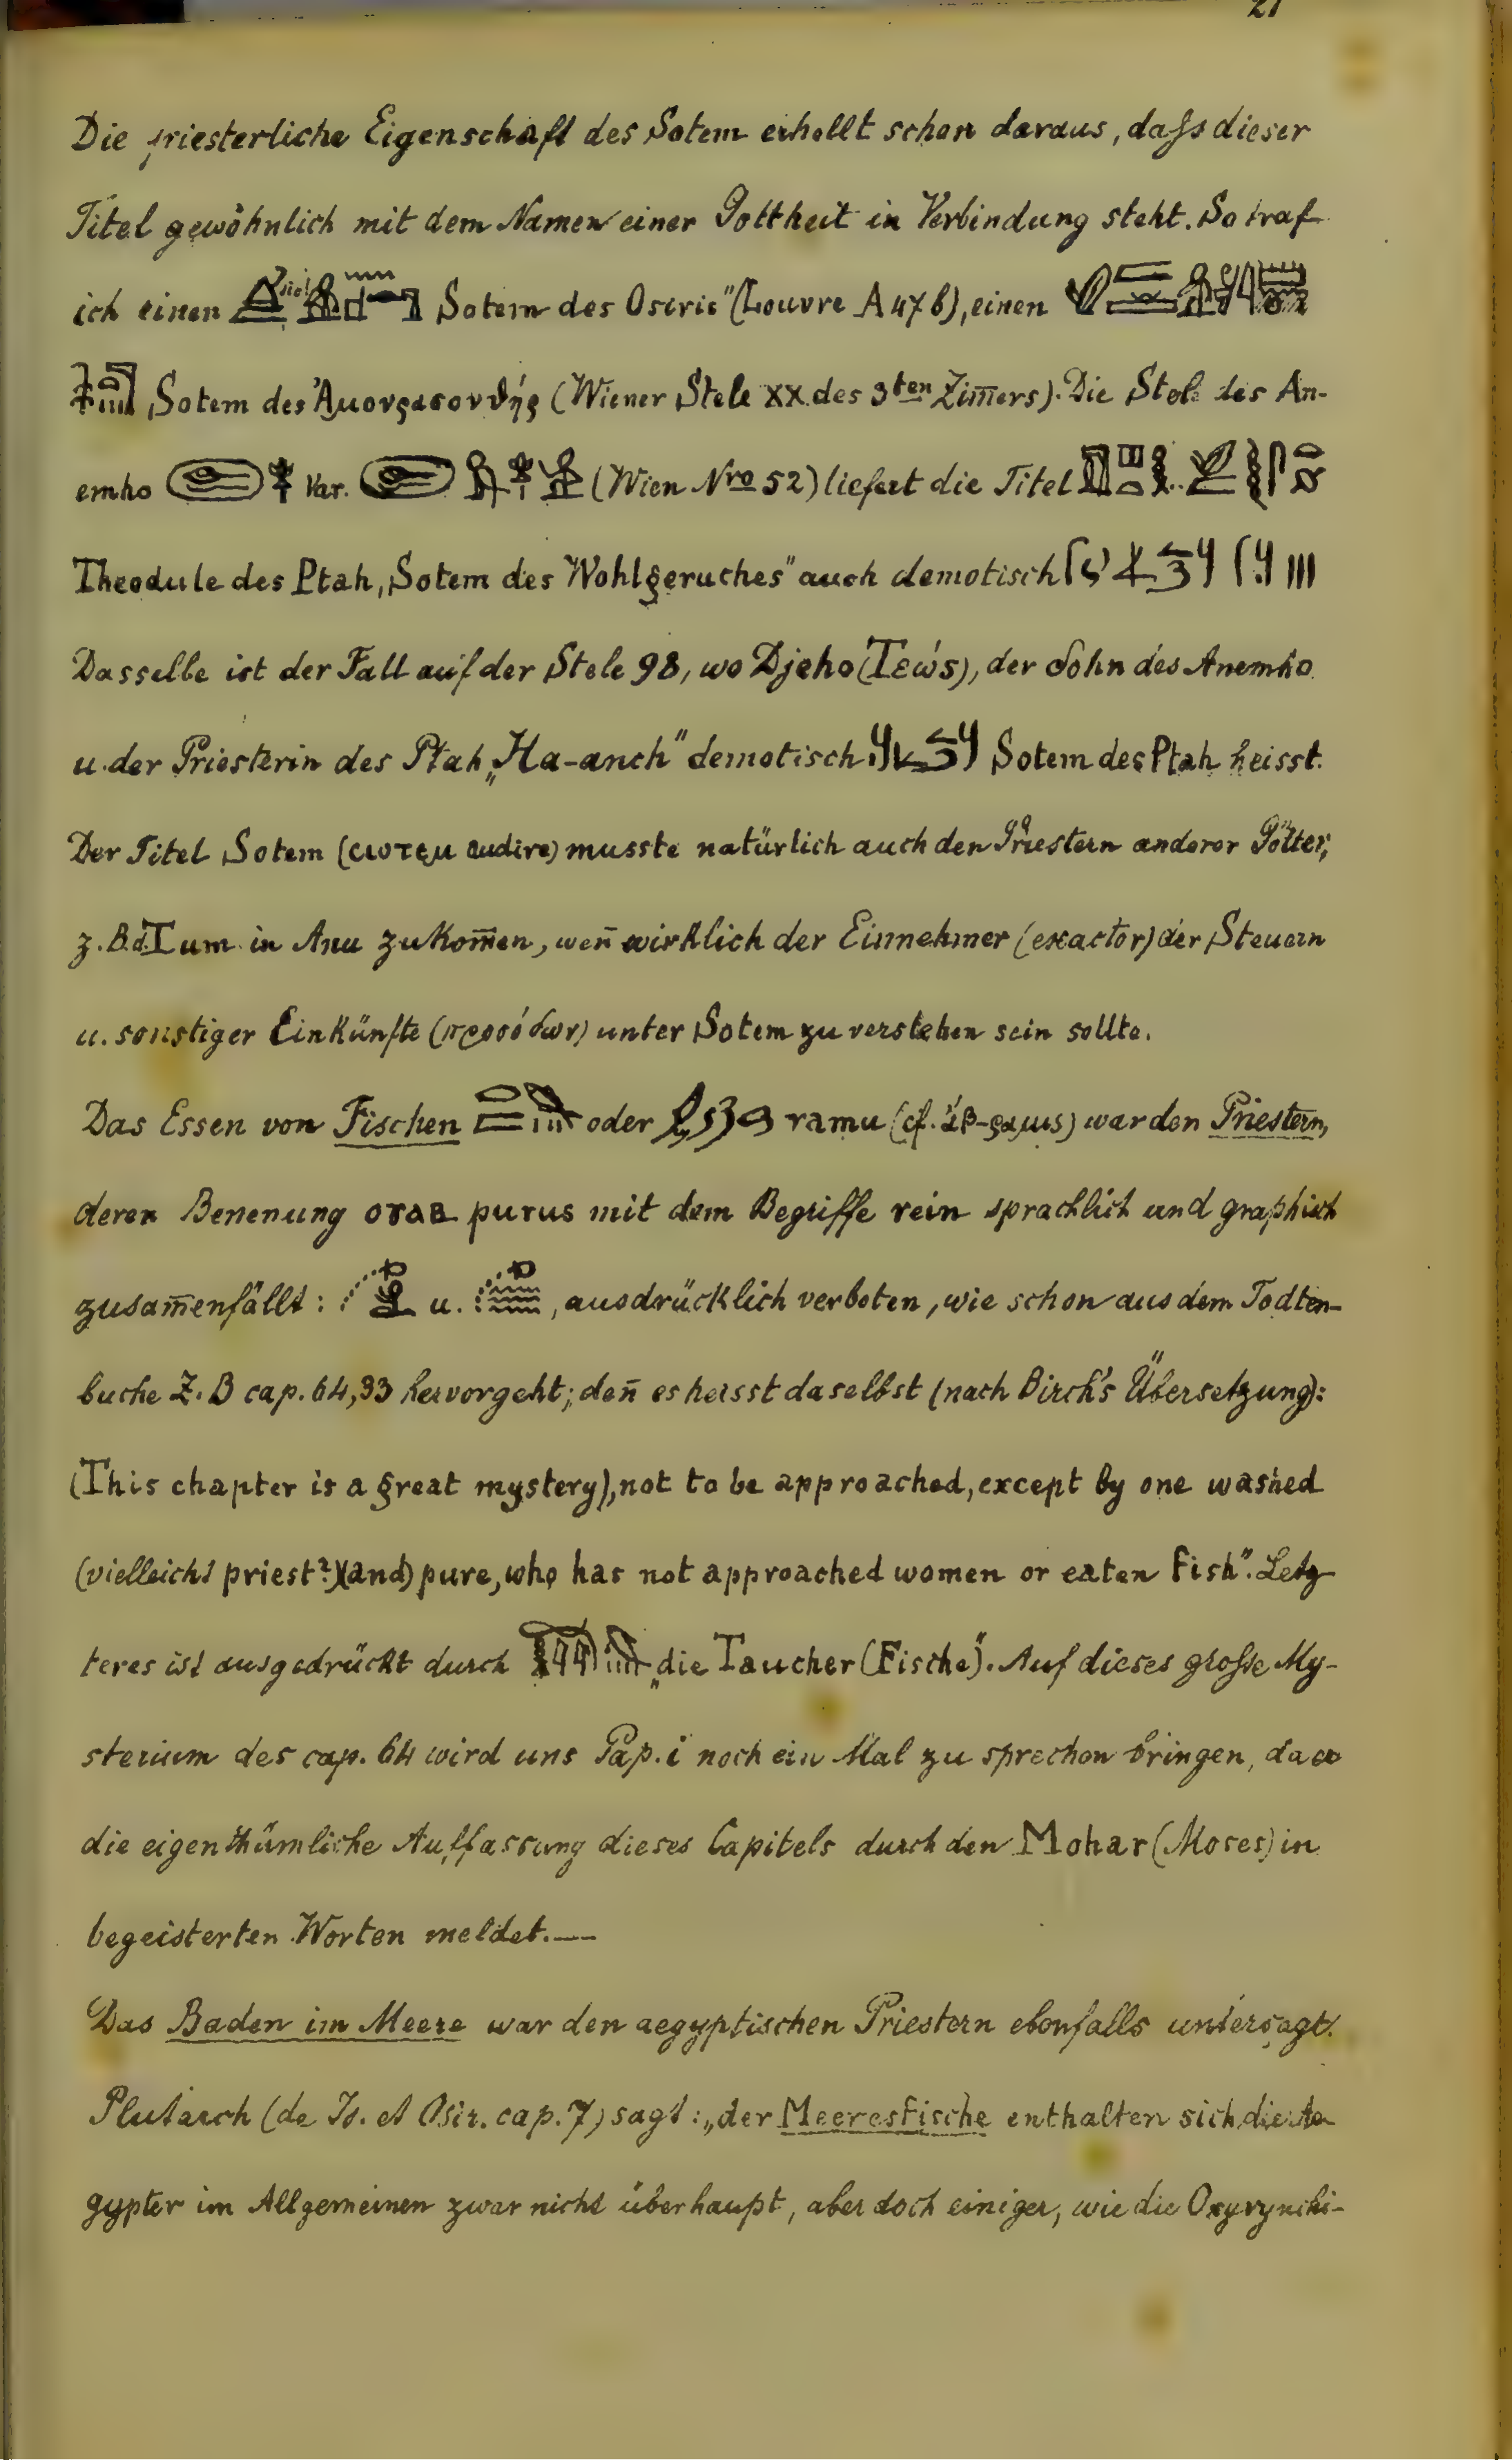 21
Die priesterliche Eigenschaft des Sotem erhellt schon daraus, daſs dieser
Titel gewöhnlich mit dem Namen einer Gottheit in Verbindung steht. So traf
ich einen Sotem des Osiris" (Louvre A 47 b), einen
Sotem des (Wiener Stele XX des 3ten Zim̄ers). Die Stele des An-
emho Var. (Wien Nro 52) liefert die Titel
Theodule des Ptah, Sotem des Wohlgeruches" auch demotisch
Dasselbe ist der Fall auf der Stele 98, wo Djeho (Τεώς), der Sohn des Anemho
u. der Priesterin des Ptah „Ha-anch" demotisch Sotem des Ptah heisst.
Der Titel Sotem (ⲥⲱⲧⲉⲙ audire) musste natürlich auch den Priestern anderer Götter,
z. B. d. Tum in Anu zukom̄en, wen̄ wirklich der Einnehmer (exactor) der Steuern
u. sonstiger Einkünfte (προσόδων) unter Sotem zu verstehen sein sollte.
Das Essen von Fischen oder ramu (cf. ἄβ-ραμις) war den Priestern,
deren Benenung ⲟⲩⲁⲃ purus mit dem Begriffe rein sprachlich und graphisch
zusam̄enfällt: u. , ausdrücklich verboten, wie schon aus dem Todten-
buche Z. B cap. 64, 33 hervorgeht; den̄ es heisst daselbst (nach Birch's Übersetzung):
(This chapter is a great mystery), not to be approached, except by one washed
(vielleicht priest?)(and) pure, who has not approached women or eaten fish". Letz-
teres ist ausgedrückt durch „die Taucher (Fische)". Auf dieses groſse My-
sterium des cap. 64 wird uns Pap. i noch ein Mal zu sprechen bringen, da er
die eigenthümliche Auffassung dieses Capitels durch den Mohar (Moses) in
begeisterten Worten meldet.—
Das Baden im Meere war den aegyptischen Priestern ebenfalls untersagt.
Plutarch (de Is. et Osir. cap. 7) sagt: „der Meeresfische enthalten sich die Ae-
gypter im Allgemeinen zwar nicht überhaupt, aber doch einiger, wie die Oxyrynchi-